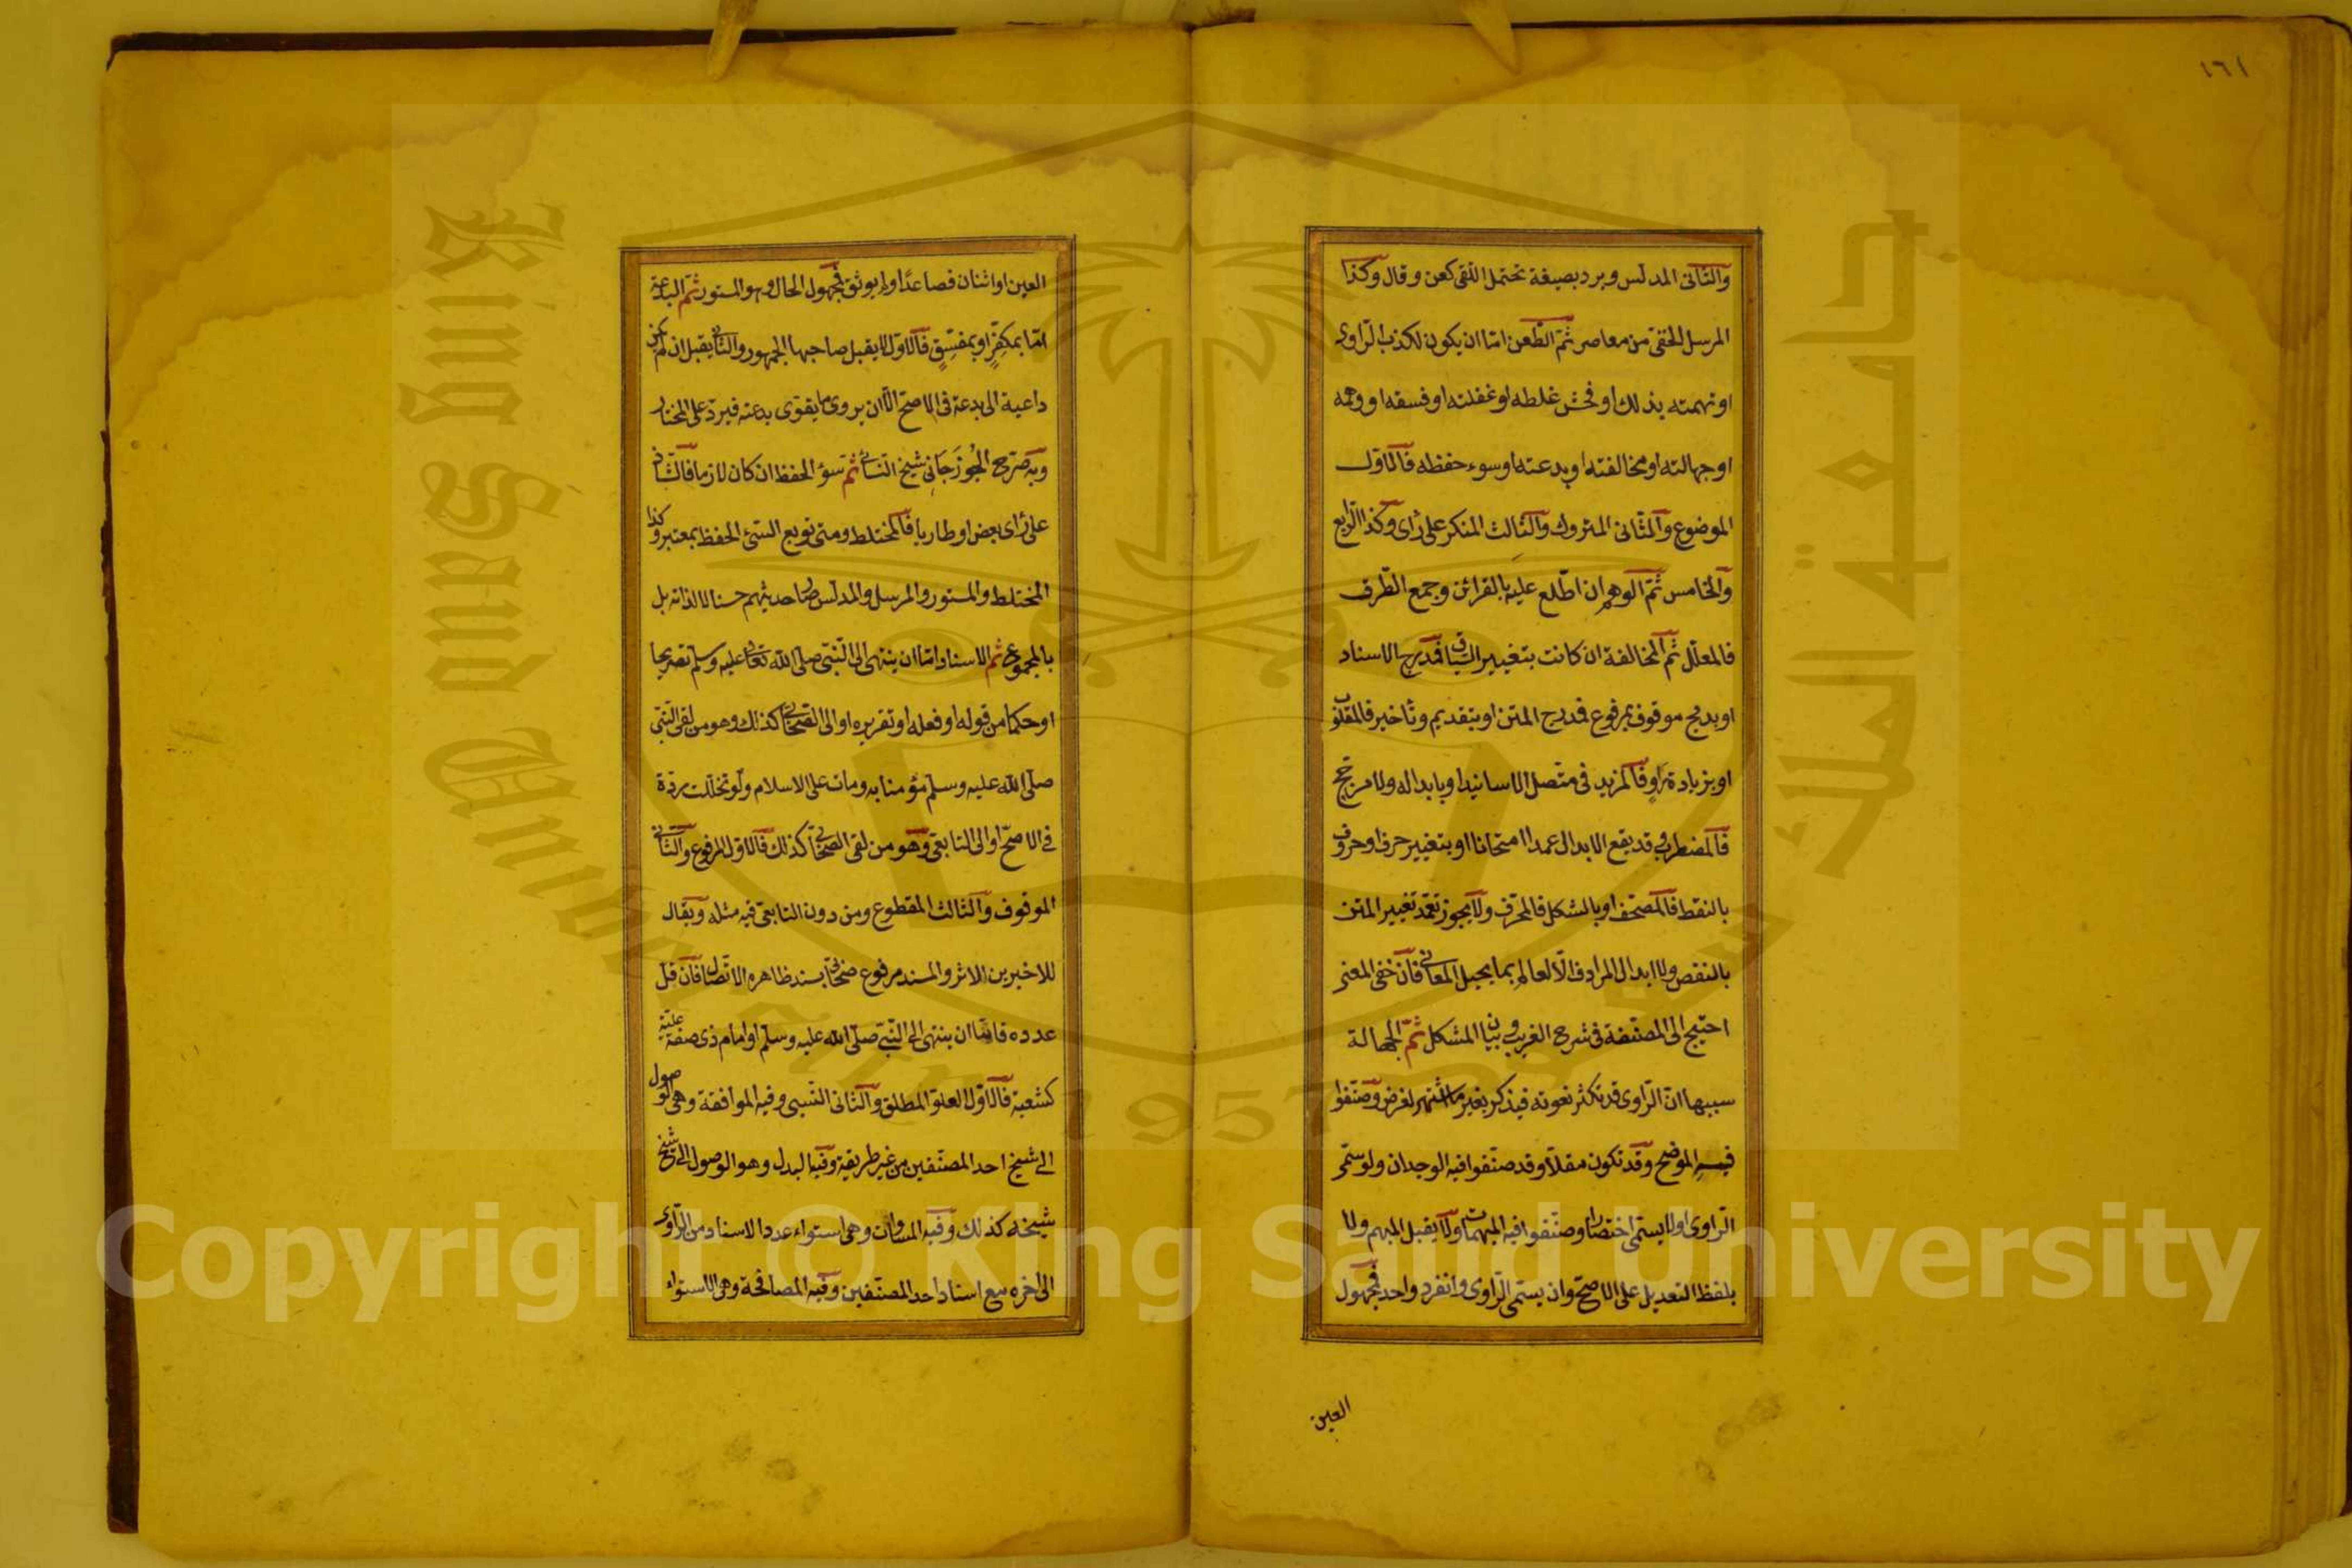 ١٦١
والثانى المدلس ويرد بصيغة تحتمل اللقى كعن وقال وكذا
المرسل الخفى من معاصر ثم الطعن امّا ان يكون لكذب الراوى
او تهمته بذلك او فحش غلطه او غفلته او فسقه او وهمه
او جهالته او مخالفته او بدعته او سوء حفظه فالاول
الموضوع والثانى المتروك والثالث المنكر على رأى وكذا الرابع
والخامس ثم الوهم ان اطّلع عليه بالقرائن وجمع الطرق
فالمعلّل ثم المخالفة ان كانت بتغيير السياق فمدرج الاسناد
او بدمج موقوف بمرفوع فمدرج المتن او بتقديم وتأخير فالمقلوب
او بزيادة راوٍ فالمزيد فى متّصل الاسانيد او بابداله ولا مرجح
فالمضطرب وقد يقع الابدال عمدا امتحانا او بتغيير حرف او حروف
بالنقط فالمصحّف او بالشكل فالمحرّف ولا يجوز تعمّد تغيير المتن
بالنقص ولا ابدال المرادف الّا لعالم بما يحيل المعانى فان خفى المعنى
احتيج الى المصنفة فى شرح الغريب وبيان المشكل ثمّ الجهالة
سببها انّ الرّاوى قد تكثر نعوته فيذكر بغير ما اشتهر لغرض وصنّفوا
فيه الموضح وقد تكون مقلّا وقد صنّفوا فيه الوحدان ولو سمّى
الرّاوى اولا يسمّى اختصارا وصنّفوا فيه المبهمات ولا يقبل المبهم ولا
بلفظ التعديل على الاصحّ وان يسمّى الرّاوى وانفرد واحد فمجهول
العين
العين او اثنان فصاعدًا ولم يوثق فمجهول الحال وهو المستور ثمّ البدعة
امّا بمكفّرٍ او بمفسّقٍ فالاول لا يقبل صاحبها الجمهور والثانى يقبل ان لم يكن
داعية الى بدعته فى الاصحّ الّا ان يروى ما يقوّى بدعته فيردّ على المختار
وبه صرّح الجُوزَجَانِى شيخ النسائى ثم سوء الحفظ ان كان لازما فالشاذ
على رأى بعض او طاريا فالمختلط ومتى توبع السّئ الحفظ بمعتبر وكذا
المختلط والمستور والمرسل والمدلّس صار حديثهم حسنا لا لذاته بل
بالمجموع ثمّ الاسناد امّا ان ينتهى الى النّبىّ صلى الله تعالى عليه وسلّم تصريحا
او حكما من قوله او فعله او تقريره او الى الصّحابى كذلك وهو من لقى النّبىّ
صلّى الله عليه وسلّم مؤمنا به ومات على الاسلام ولو تخلّلت ردّة
فى الاصحّ او الى التابعىّ وهو من لقى الصحابى كذلك فالاول المرفوع والثانى
الموقوف والثالث المقطوع ومن دون التابعىّ فيه مثله ويقال
للاخيرين الاثر والمسند مرفوع صحابىّ بسند ظاهره الاتّصال فان قلّ
عدده فامّا ان ينتهى الى النّبىّ صلّى الله عليه وسلّم او امام ذى صفة عليّة
كشعبة فالاول العلوّ المطلق والثانى النّسبى وفيه الموافقة وهى الوصول
الى شيخ احد المصنّفين من غير طريقه وفيه البدل وهو الوصول الى شيخ
شيخه كذلك وفيه المساوات وهى استواء عدد الاسناد من الرّاوى
الى اخره مع اسناد احد المصنّفين وفيه المصافحة وهى الاستواء
Copyright © King Saud University
King Saud University
جامعة الملك سعود
1957